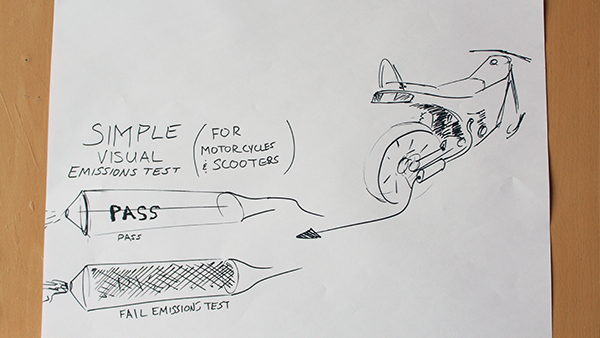 SIMPLE
VISUAL
EMISSIONS TEST
(FOR
MOTORCYCLES
& SCOOTERS)
PASS
PASS
FAIL EMISSIONS TEST